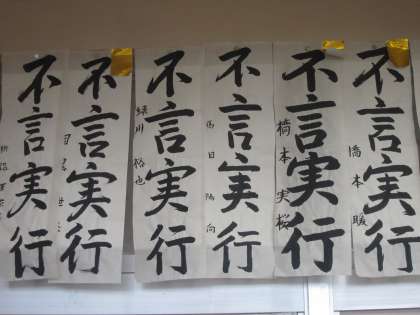 不言実行
橋本暖
不言実行
橋本実桜
不言実行
馬目陽向
不言実行
緑川裕也
不言実行
不言実行